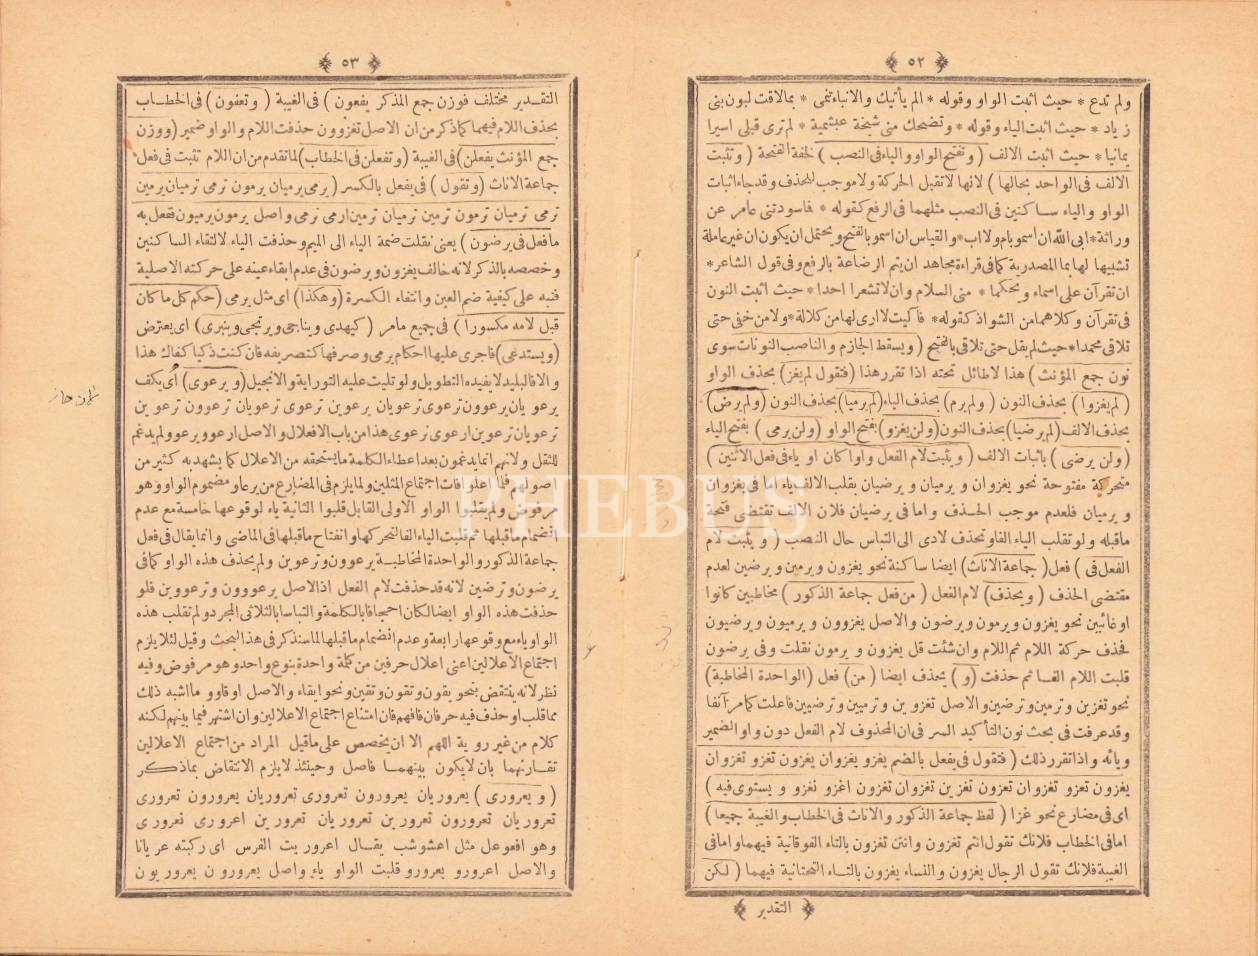 ٥٢
ولم تدع * حيث اثبت الواو وقوله * الم يأتيك والانباء تنمى * بما لاقت لبون بنى
زياد * حيث اثبت الياء وقوله * وتضحك منى شيخة عبشمية * لم ترى قبلى اسيرا
يمانيا * حيث اثبت الالف ( وتفتح الواو والياء فى النصب ) لخفة الفتحة ( وتثبت
الالف فى الواحد بحالها ) لانها لا تقبل الحركة ولا موجب للحذف وقد جاء اثبات
الواو والياء ساكنين فى النصب مثلهما فى الرفع كقوله * فاسودتنى عامر عن
وراثة * ابى الله ان اسمو بام ولا اب * والقياس ان اسمو بالفتح ويحتمل ان يكون ان غير عاملة
تشبيها لها بما المصدرية كما فى قراءة مجاهد ان يتم الرضاعة بالرفع وفى قول الشاعر *
ان تقرآن على اسماء ويحكما * منى السلام وان لا تشعرا احدا * حيث اثبت النون
فى تقرآن وكلاهما من الشواذ كقوله * فآكيت لا ارى لها من كلالة * ولا من حفى حتى
تلاقى محمدا * حيث لم يقل حتى تلاقى بالفتح ( ويسقط الجازم والناصب النونات سوى
نون جمع المؤنث ) هذا لا طائل تحته اذا تقرر هذا ( فتقول لم يغز ) بحذف الواو
( لم يغزوا ) بحذف النون ( ولم يرم ) بحذف الياء ( لم يرميا ) بحذف النون ( ولم يرض )
بحذف الالف ( لم يرضيا ) بحذف النون ( ولن يغزو ) بفتح الواو ( ولن يرمى ) بفتح الياء
( ولن يرضى ) باثبات الالف ( ويثبت لام الفعل واوا كان او ياء فى فعل الاثنين )
متحركة مفتوحة نحو يغزوان ويرميان ويرضيان بقلب الالف ياء اما فى يغزوان
ويرميان فلعدم موجب الحذف واما فى يرضيان فلان الالف تقتضى فتحة
ما قبله ولو تقلب الياء الفا وتحذف لادى الى التباس حال النصب ( ويثبت لام
الفعل فى ) فعل ( جماعة الاناث ) ايضا ساكنة نحو يغزون ويرمين ويرضين لعدم
مقتضى الحذف ( ويحذف ) لام الفعل ( من فعل جماعة الذكور ) مخاطبين كانوا
او غائبين نحو يغزون ويرمون ويرضون والاصل يغزوون ويرميون ويرضيون
فحذف حركة اللام ثم اللام وان شئت قل يغزون ويرمون نقلت وفى يرضون
قلبت اللام الفا ثم حذفت ( و ) يحذف ايضا ( من ) فعل ( الواحدة المخاطبة )
نحو تغزين وترمين وترضين والاصل تغزوين وترميين وترضيين فاعلت كما مر آنفا
وقد عرفت فى بحث نون التأكيد السر فى ان المحذوف لام الفعل دون واو الضمير
ويائه واذا تقرر ذلك ( فتقول فى يفعل بالضم يغزو يغزوان يغزون تغزو تغزوان
يغزون تغزو تغزوان تغزون تغزين تغزوان تغزون اغزو نغزو ويستوى فيه )
اى فى مضارع نحو غزا ( لفظ جماعة الذكور والاناث فى الخطاب والغيبة جميعا )
اما فى الخطاب فلانك تقول انتم تغزون وانتن تغزون بالتاء الفوقانية فيهما واما فى
الغيبة فلانك تقول الرجال يغزون والنساء يغزون بالياء التحتانية فيهما ( لكن
التقدير
٥٣
التقدير مختلف فوزن جمع المذكر يفعون ) فى الغيبة ( وتفعون ) فى الخطاب
بحذف اللام فيهما كما ذكر من ان الاصل تغزوون حذفت اللام والواو ضمير ( ووزن
جمع المؤنث يفعلن ) فى الغيبة ( وتفعلن فى الخطاب ) لما تقدم من ان اللام تثبت فى فعل
جماعة الاناث ( وتقول ) فى يفعل بالكسر ( يرمى يرميان يرمون ترمى ترميان يرمين
ترمى ترميان ترمون ترمين ترميان ترمين ارمى نرمى واصل يرمون يرميون ففعل به
ما فعل فى يرضون ) يعنى نقلت ضمة الياء الى الميم وحذفت الياء لالتقاء الساكنين
وخصصه بالذكر لانه خالف يغزون ويرضون فى عدم ابقاء عينه على حركته الاصلية
فنبه على كيفية ضم العين وانتفاء الكسرة ( وهكذا ) اى مثل يرمى ( حكم كل ما كان
قبل لامه مكسورا ) فى جميع مامر ( كيهدى ويناجى ويرتجى وينبرى ) اى يعترض
( ويستدعى ) فاجرى عليها احكام يرمى وصرفها كتصريفه فان كنت ذكيا كفاك هذا
والا فالبليد لا يفيده التطويل ولو تليت عليه التوراية والانجيل ( ويرعوى ) اى يكف
يرعويان يرعوون ترعوى ترعويان يرعوين ترعوى ترعويان ترعوون ترعوين
ترعويان ترعوين ارعوى نرعوى هذا من باب الافعلال والاصل ارعوو يرعوو ولم يدغم
للثقل ولانهم انما يدغمون بعد اعطاء الكلمة ما يستحقه من الاعلال كما يشهد به كثير من
اصولهم فلما اعلوا فات اجتماع المثلين ولما يلزم فى المضارع من يرعاو مضموم الواو وهو
مرفوض ولم يقلبوا الواو الاولى القابل قلبوا الثانية ياء لوقوعها خامسة مع عدم
انضمام ما قبلها ثم قلبت الياء الفا لتحركها وانفتاح ما قبلها فى الماضى وانما يقال فى فعل
جماعة الذكور والواحدة المخاطبة يرعوون وترعوين ولم يحذف هذه الواو كما فى
يرضون وترضين لانه قد حذفت لام الفعل اذ الاصل يرعوون وترعووين فلو
حذفت هذه الواو ايضا لكان احجافا بالكلمة والتباسا بالثلاثى المجرد ولم تقلب هذه
الواو ياء مع وقوعها رابعة وعدم انضمام ما قبلها لما سنذكر فى هذا البحث وقيل لئلا يلزم
اجتماع الاعلالين اعنى اعلال حرفين من كلمة واحدة بنوع واحد وهو مرفوض وفيه
نظر لانه ينتقض بنحو يقون وتقون وتقين ونحو ايقاء والاصل اوقاوو ما اشبه ذلك
مما قلب او حذف فيه حرفان فافهم فان امتناع اجتماع الاعلالين وان اشتهر فيما بينهم لكنه
كلام من غير روية اللهم الا ان يخصص على ما قيل المراد من اجتماع الاعلالين
تقارنهما بان لا يكون بينهما فاصل وحينئذ لا يلزم الانتقاض بما ذكر
( ويعرورى ) يعروريان يعرورون تعرورى تعروريان يعرورون تعرورى
تعروريان تعرورون تعرورين تعروريان تعرورين اعرورى نعرورى
وهو افعوعل مثل اعشوشب يقال اعروريت الفرس اى ركبته عريانا
والاصل اعرورو يعرورو قلبت الواو ياء واصل يعرورون يعروريون
PHEBUS